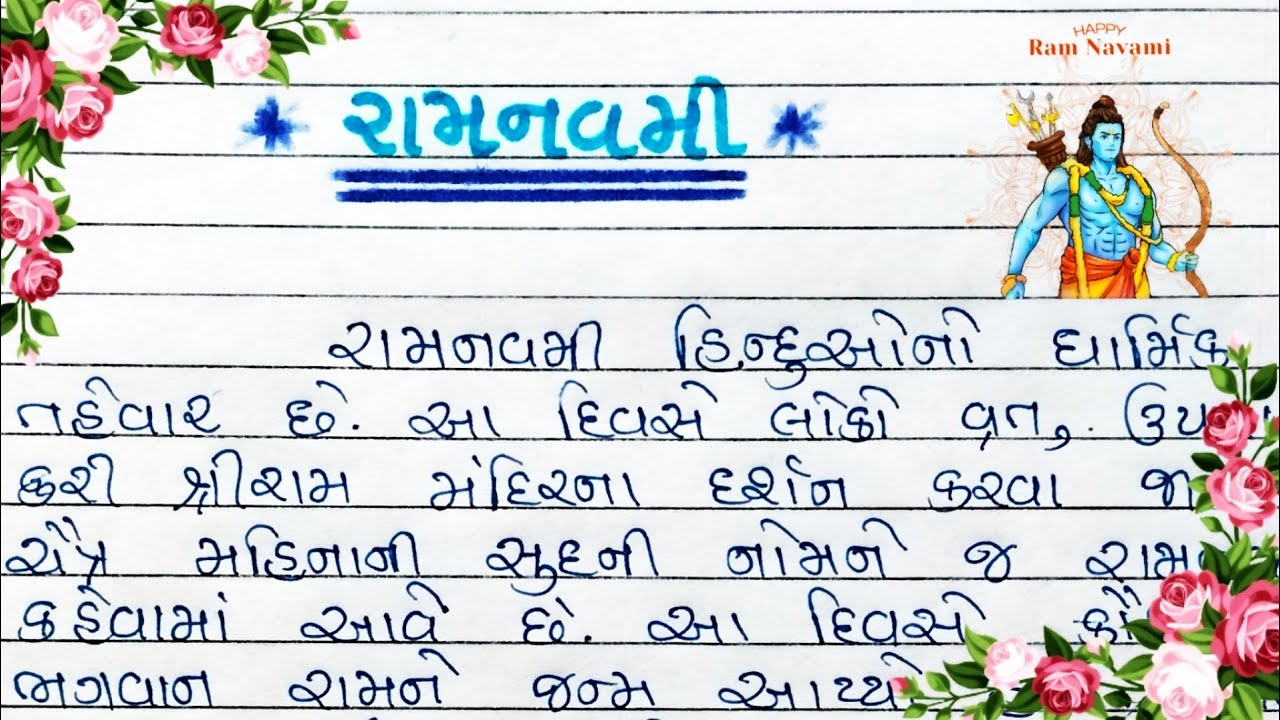 HAPPY
Ram Navami
રામનવમી
રામનવમી હિન્દુઓનો ધાર્મિક
તહેવાર છે. આ દિવસે લોકો વ્રત,
કરી શ્રીરામ મંદિરના દર્શન કરવા જા
ચૈત્ર મહિનાની સુદની નોમને જ રામ
કહેવામાં આવે છે. આ દિવસે કૌ
ભગવાન રામને જન્મ આપ્યો